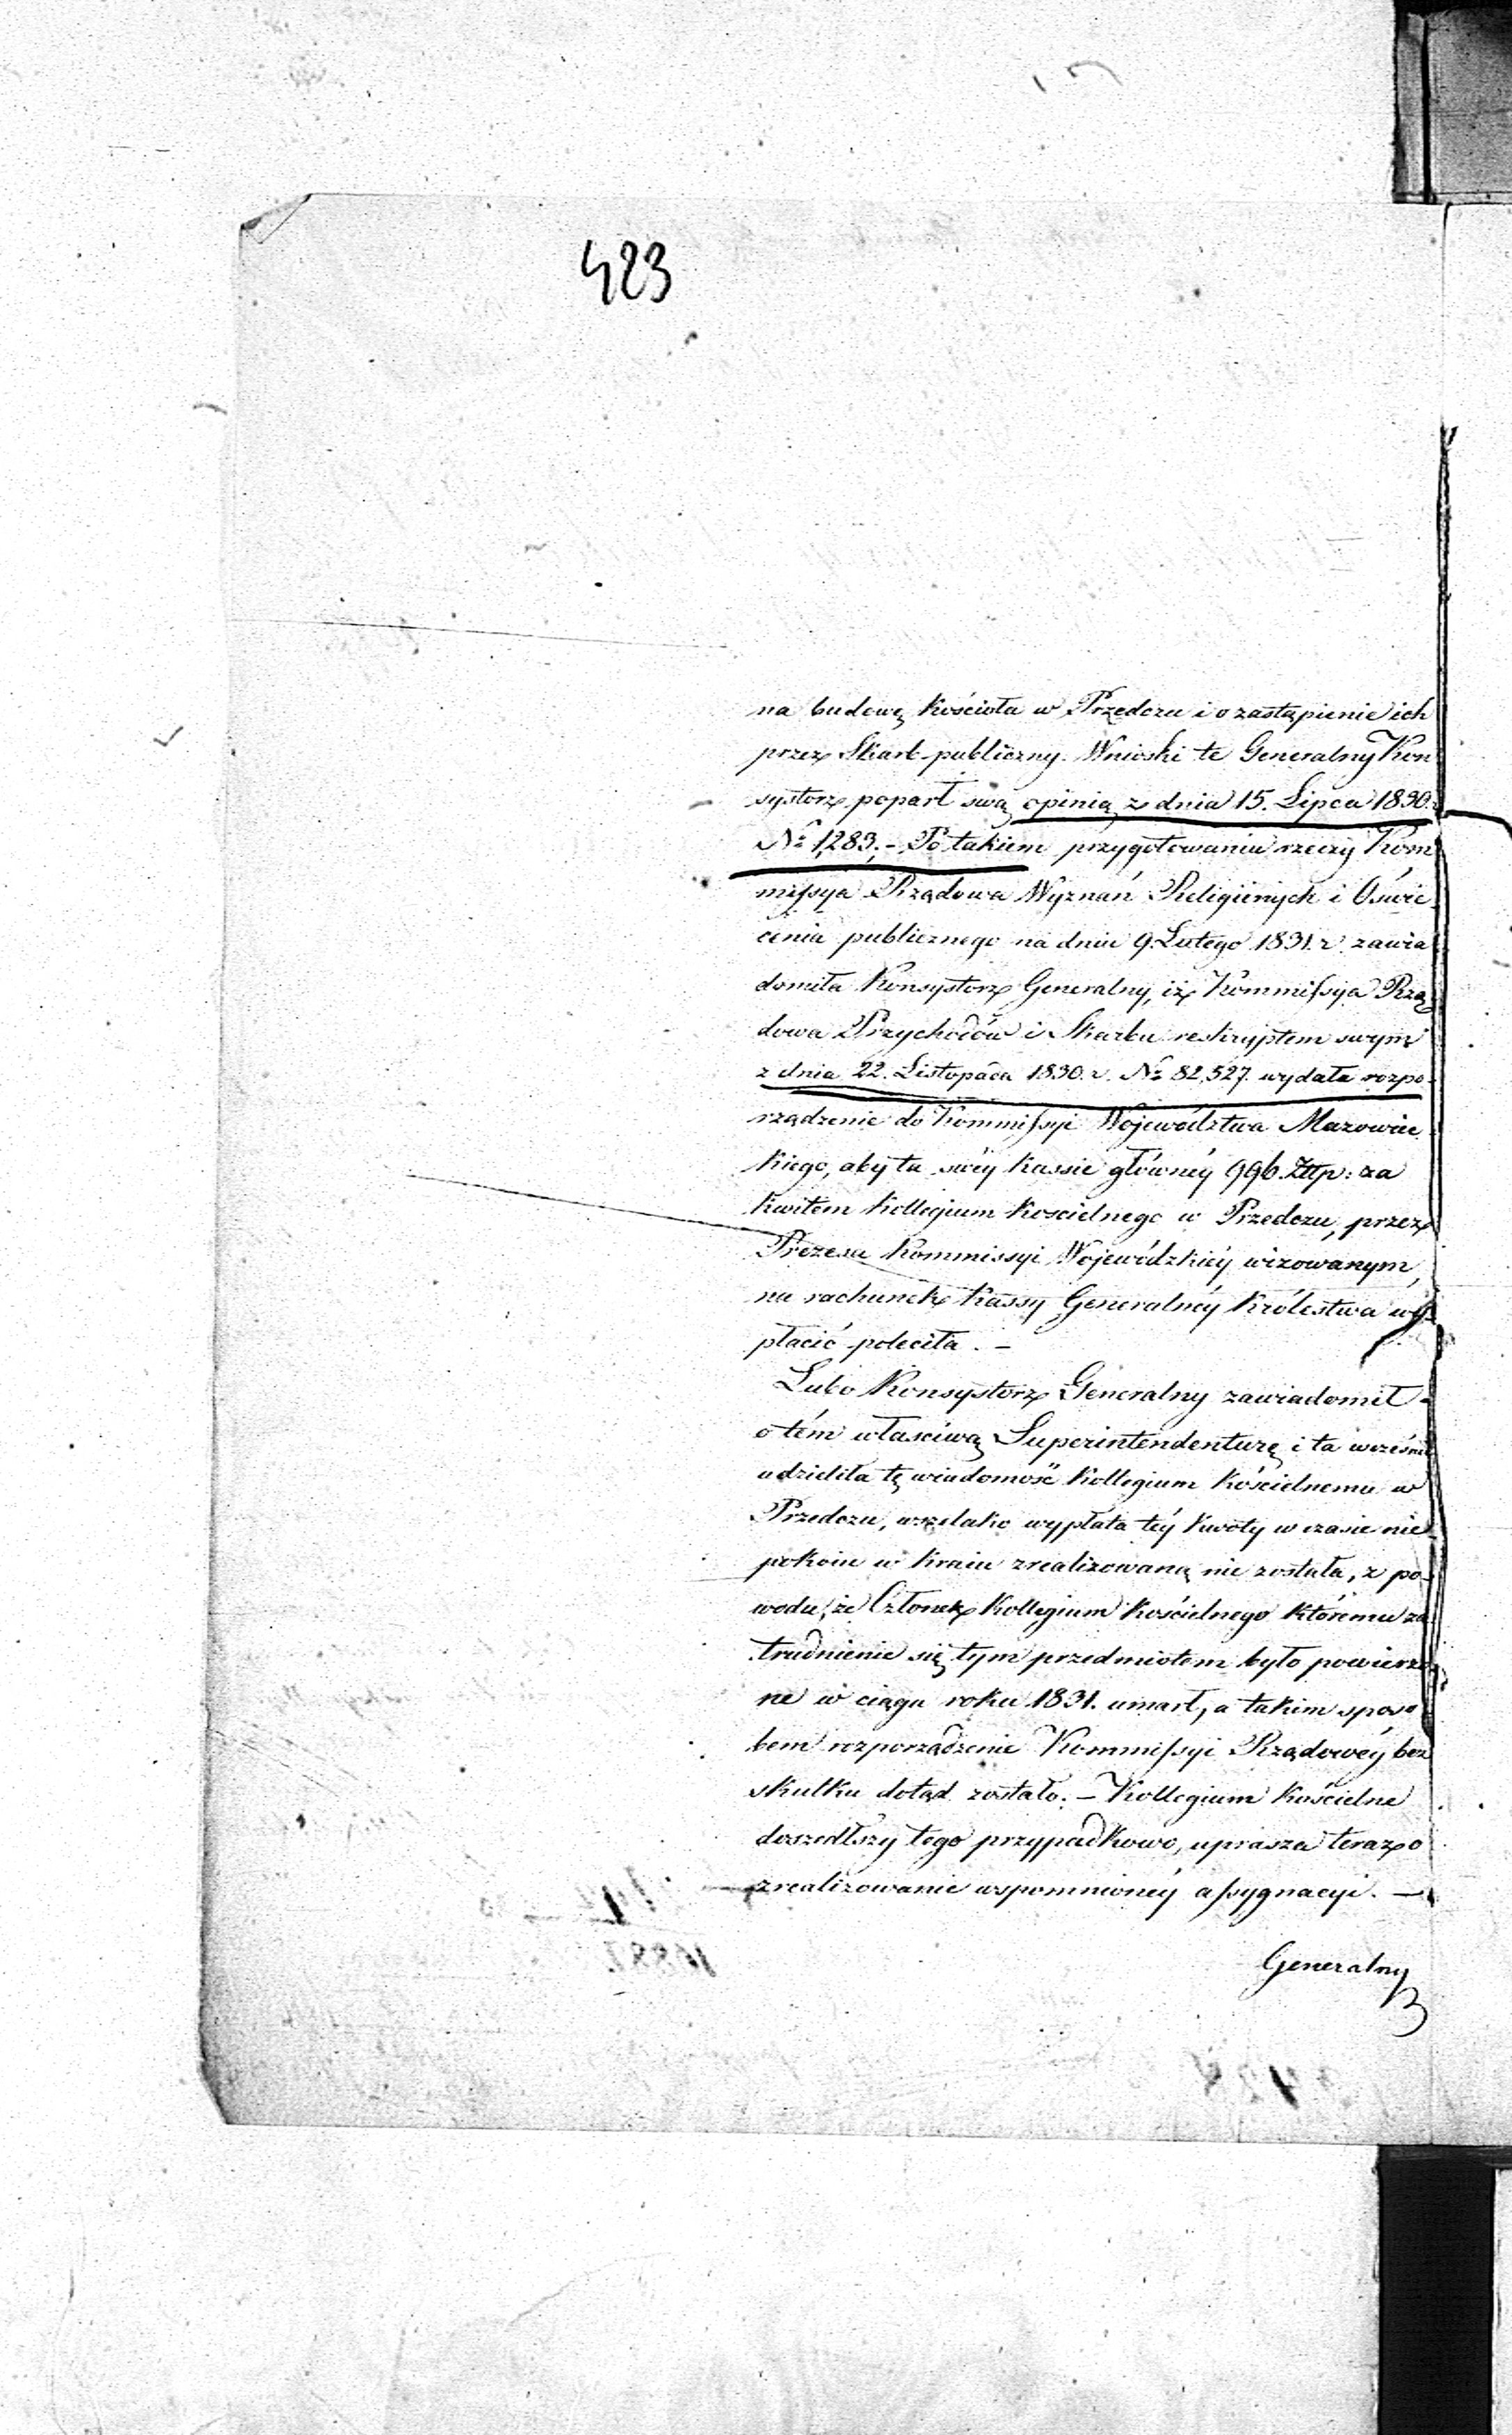 423
na budowę Kościoła w Przedczu i o zastąpienie ich
przez Skarb publiczny. Wnioski te Generalny Kon
systorz poparł swą opinią z dnia 15. Lipca 1830.
N° 1,283. – Po takiem przygotowaniu rzeczy Kom
missya Rządowa Wyznań Religiinych i Oświe
cenia publicznego na dniu 9. Lutego 1831. r. zawia
domiła Konsystorz Generalny, iż Kommissya Rzą
dowa Przychodów i Skarbu reskryptem swym
z dnia 22. Listopada 1830. r. N° 82,527. wydała rozpo-
rządzenie do Kommissyi Województwa Mazowiec
kiego, aby ta swéy kassie głównéy 996. Złtp: za
kwitem Kollegium Kościelnego w Przedczu, przez
Prezesa Kommissyi Wojewódzkiéy wizowanym,
na rachunek Kassy Generalnéy Królestwa wy
płacić poleciła. –
Lubo Konsystorz Generalny zawiadomił
o tém właściwą Superintendenturę i ta wcześnie
udzieliła tę wiadomość Kollegium Kościelnemu w
Przedczu, wszelako wypłata téy kwoty w czasie nie-
pokoiu w Kraiu zrealizowaną nie została, z po-
wodu, że Członek Kollegium Kościelnego któremu za
trudnienie się tym przedmiotem było powierzo
ne w ciągu roku 1831. umarł, a takim sposo
bem rozporządzenie Kommissyi Rządowéy bez
skutku dotąd zostało. – Kollegium Kościelne
doszedłszy tego przypadkowo, uprasza teraz o
zrealizowanie wspomnionéy assygnacyi. –
Generalny